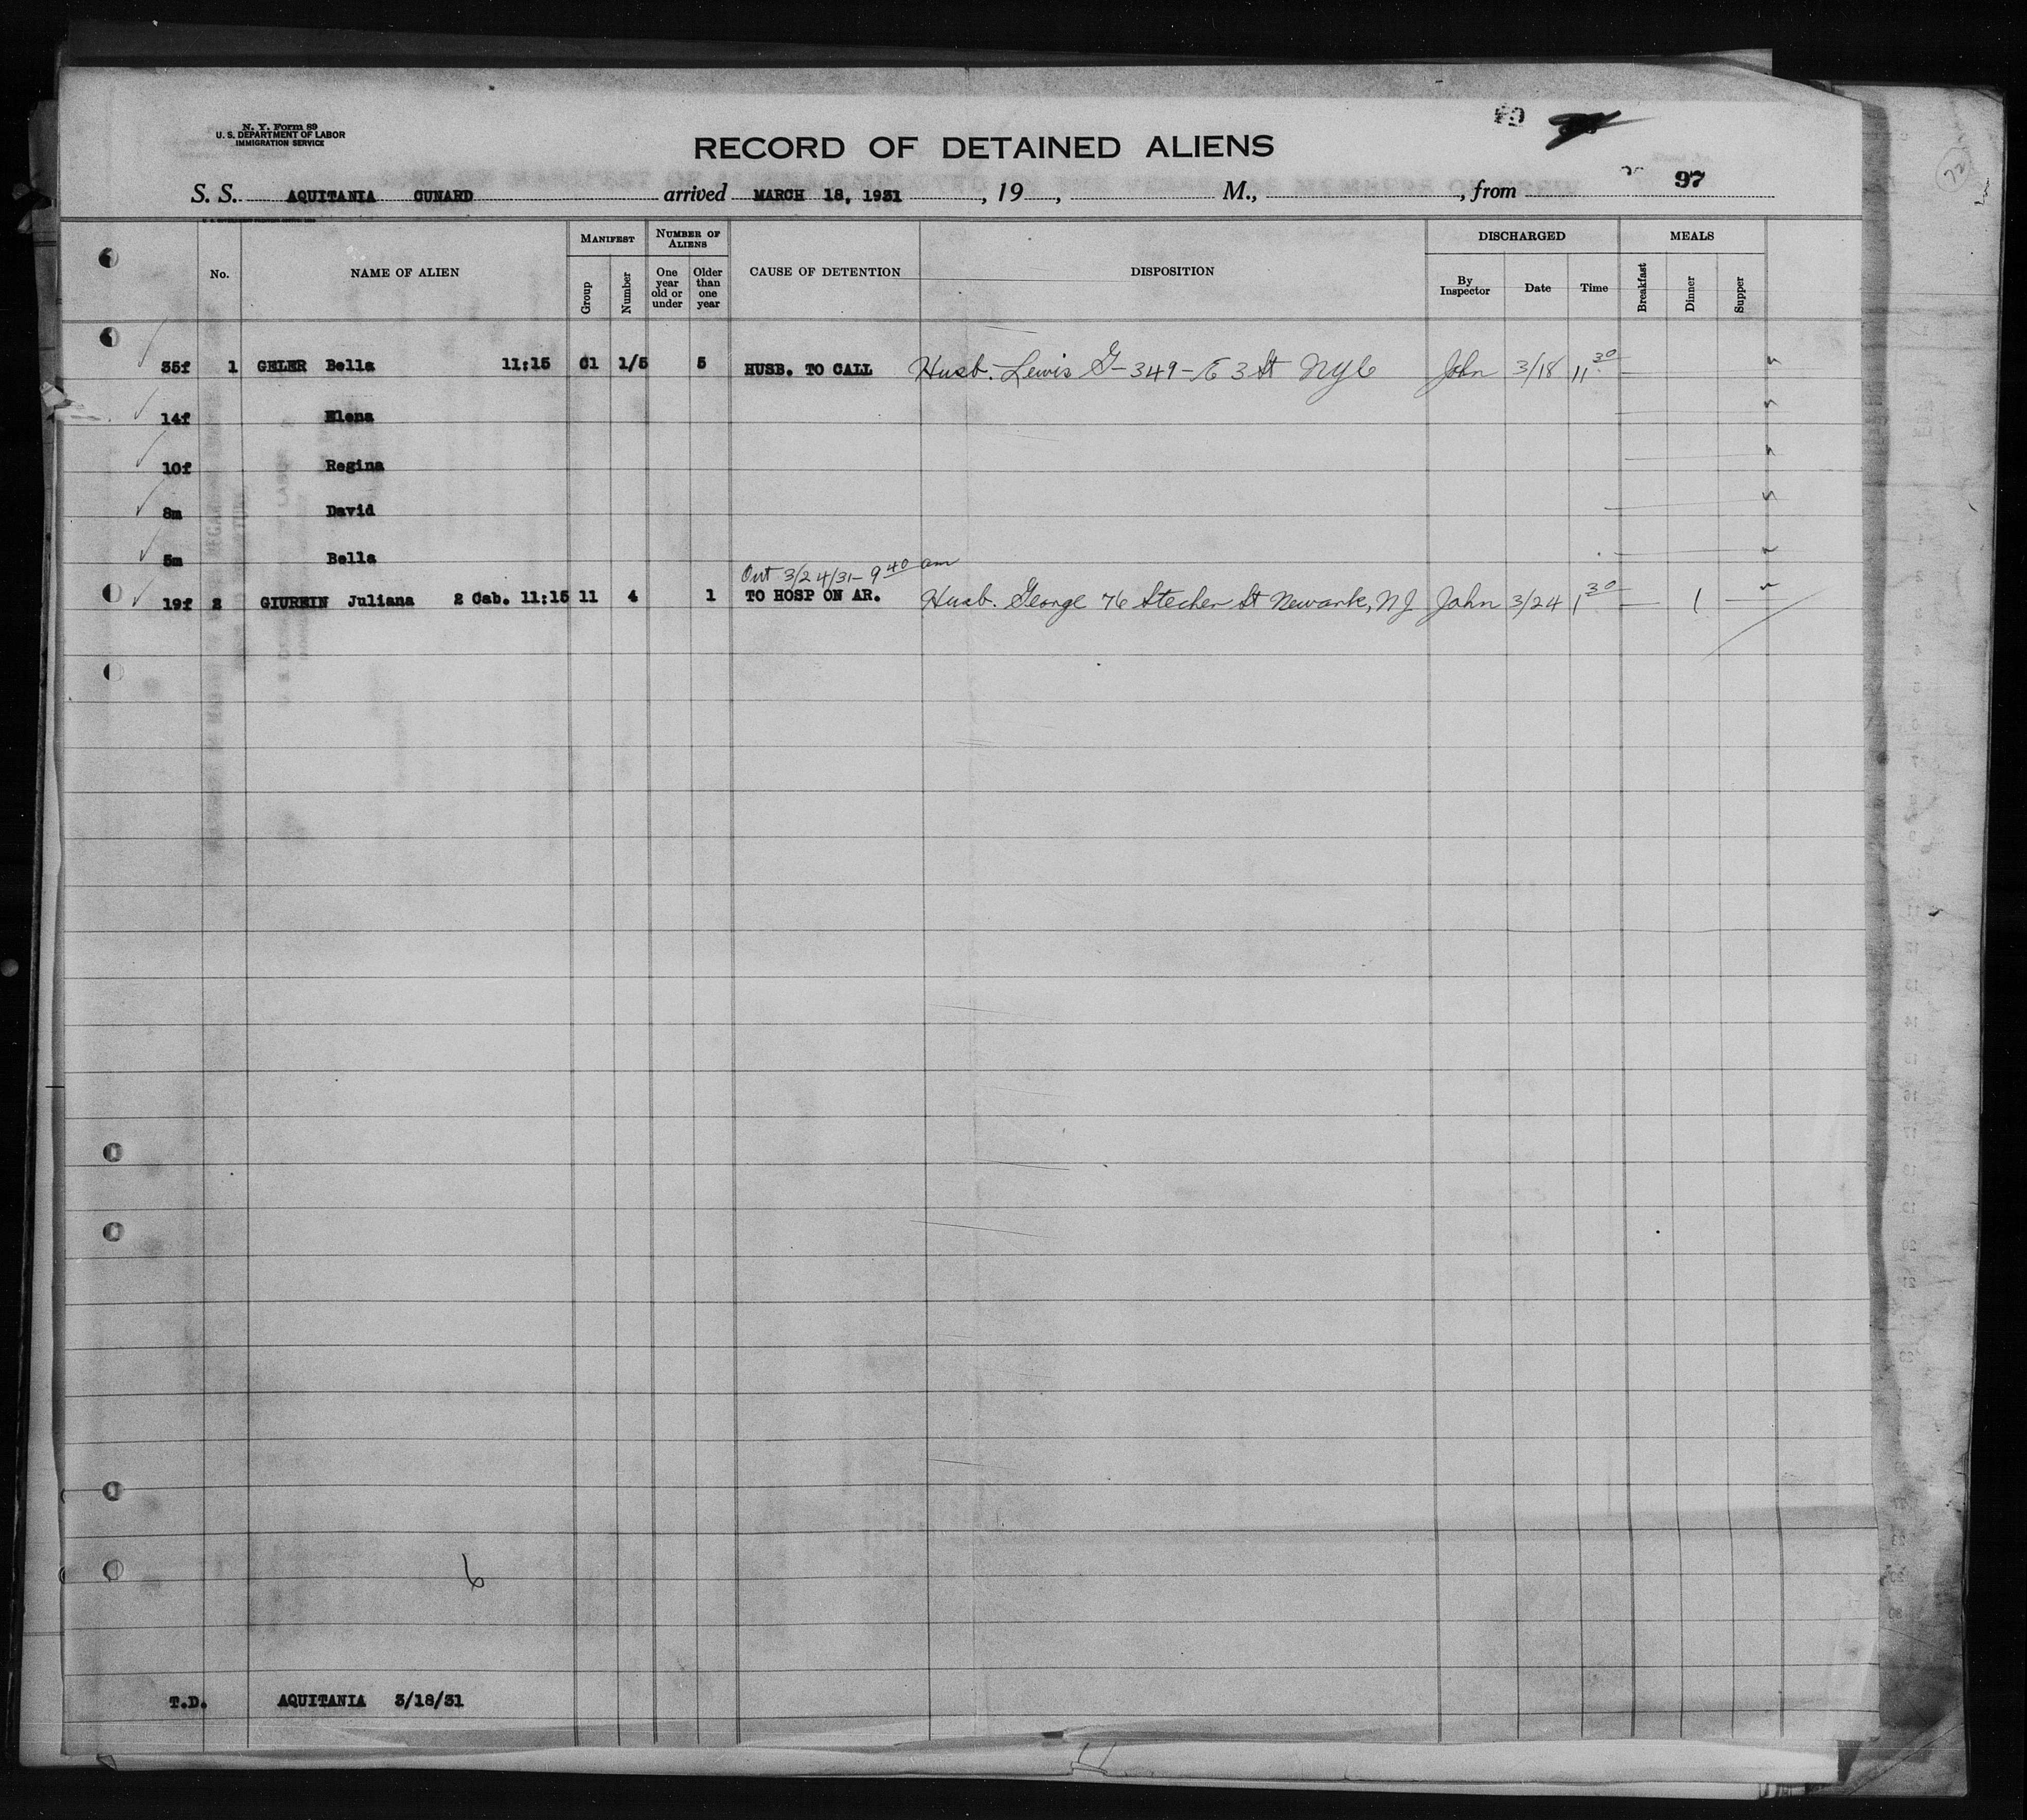 N. Y. Form 89
U. S. DEPARTMENT OF LABOR
IMMIGRATION SERVICE
RECORD OF DETAINED ALIENS
S. S. AQUITANIA CUNARD arrived MARCH 18, 1931, 19 , M., , from 97
No. NAME OF ALIEN MANIFEST Group Number NUMBER OF ALIENS One year old or under Older than one year CAUSE OF DETENTION DISPOSITION DISCHARGED By Inspector Date Time MEALS Breakfast Dinner Supper
35f 1 GELER Bella 11:15 C1 1/5 5 HUSB. TO CALL Husb. Lewis G - 349 - E 3 St NYC John 3/18 11 30
14f Elena
10f Regina
8m David
5m Bella
Out 3/24/31 - 9 40 am
19f 2 GIURKIN Juliana 2 Cab. 11:15 11 4 1 TO HOSP ON AR. Husb. George 76 Stecher St Newark, NJ John 3/24 1 30 — 1 —
6
T.D. AQUITANIA 3/18/31